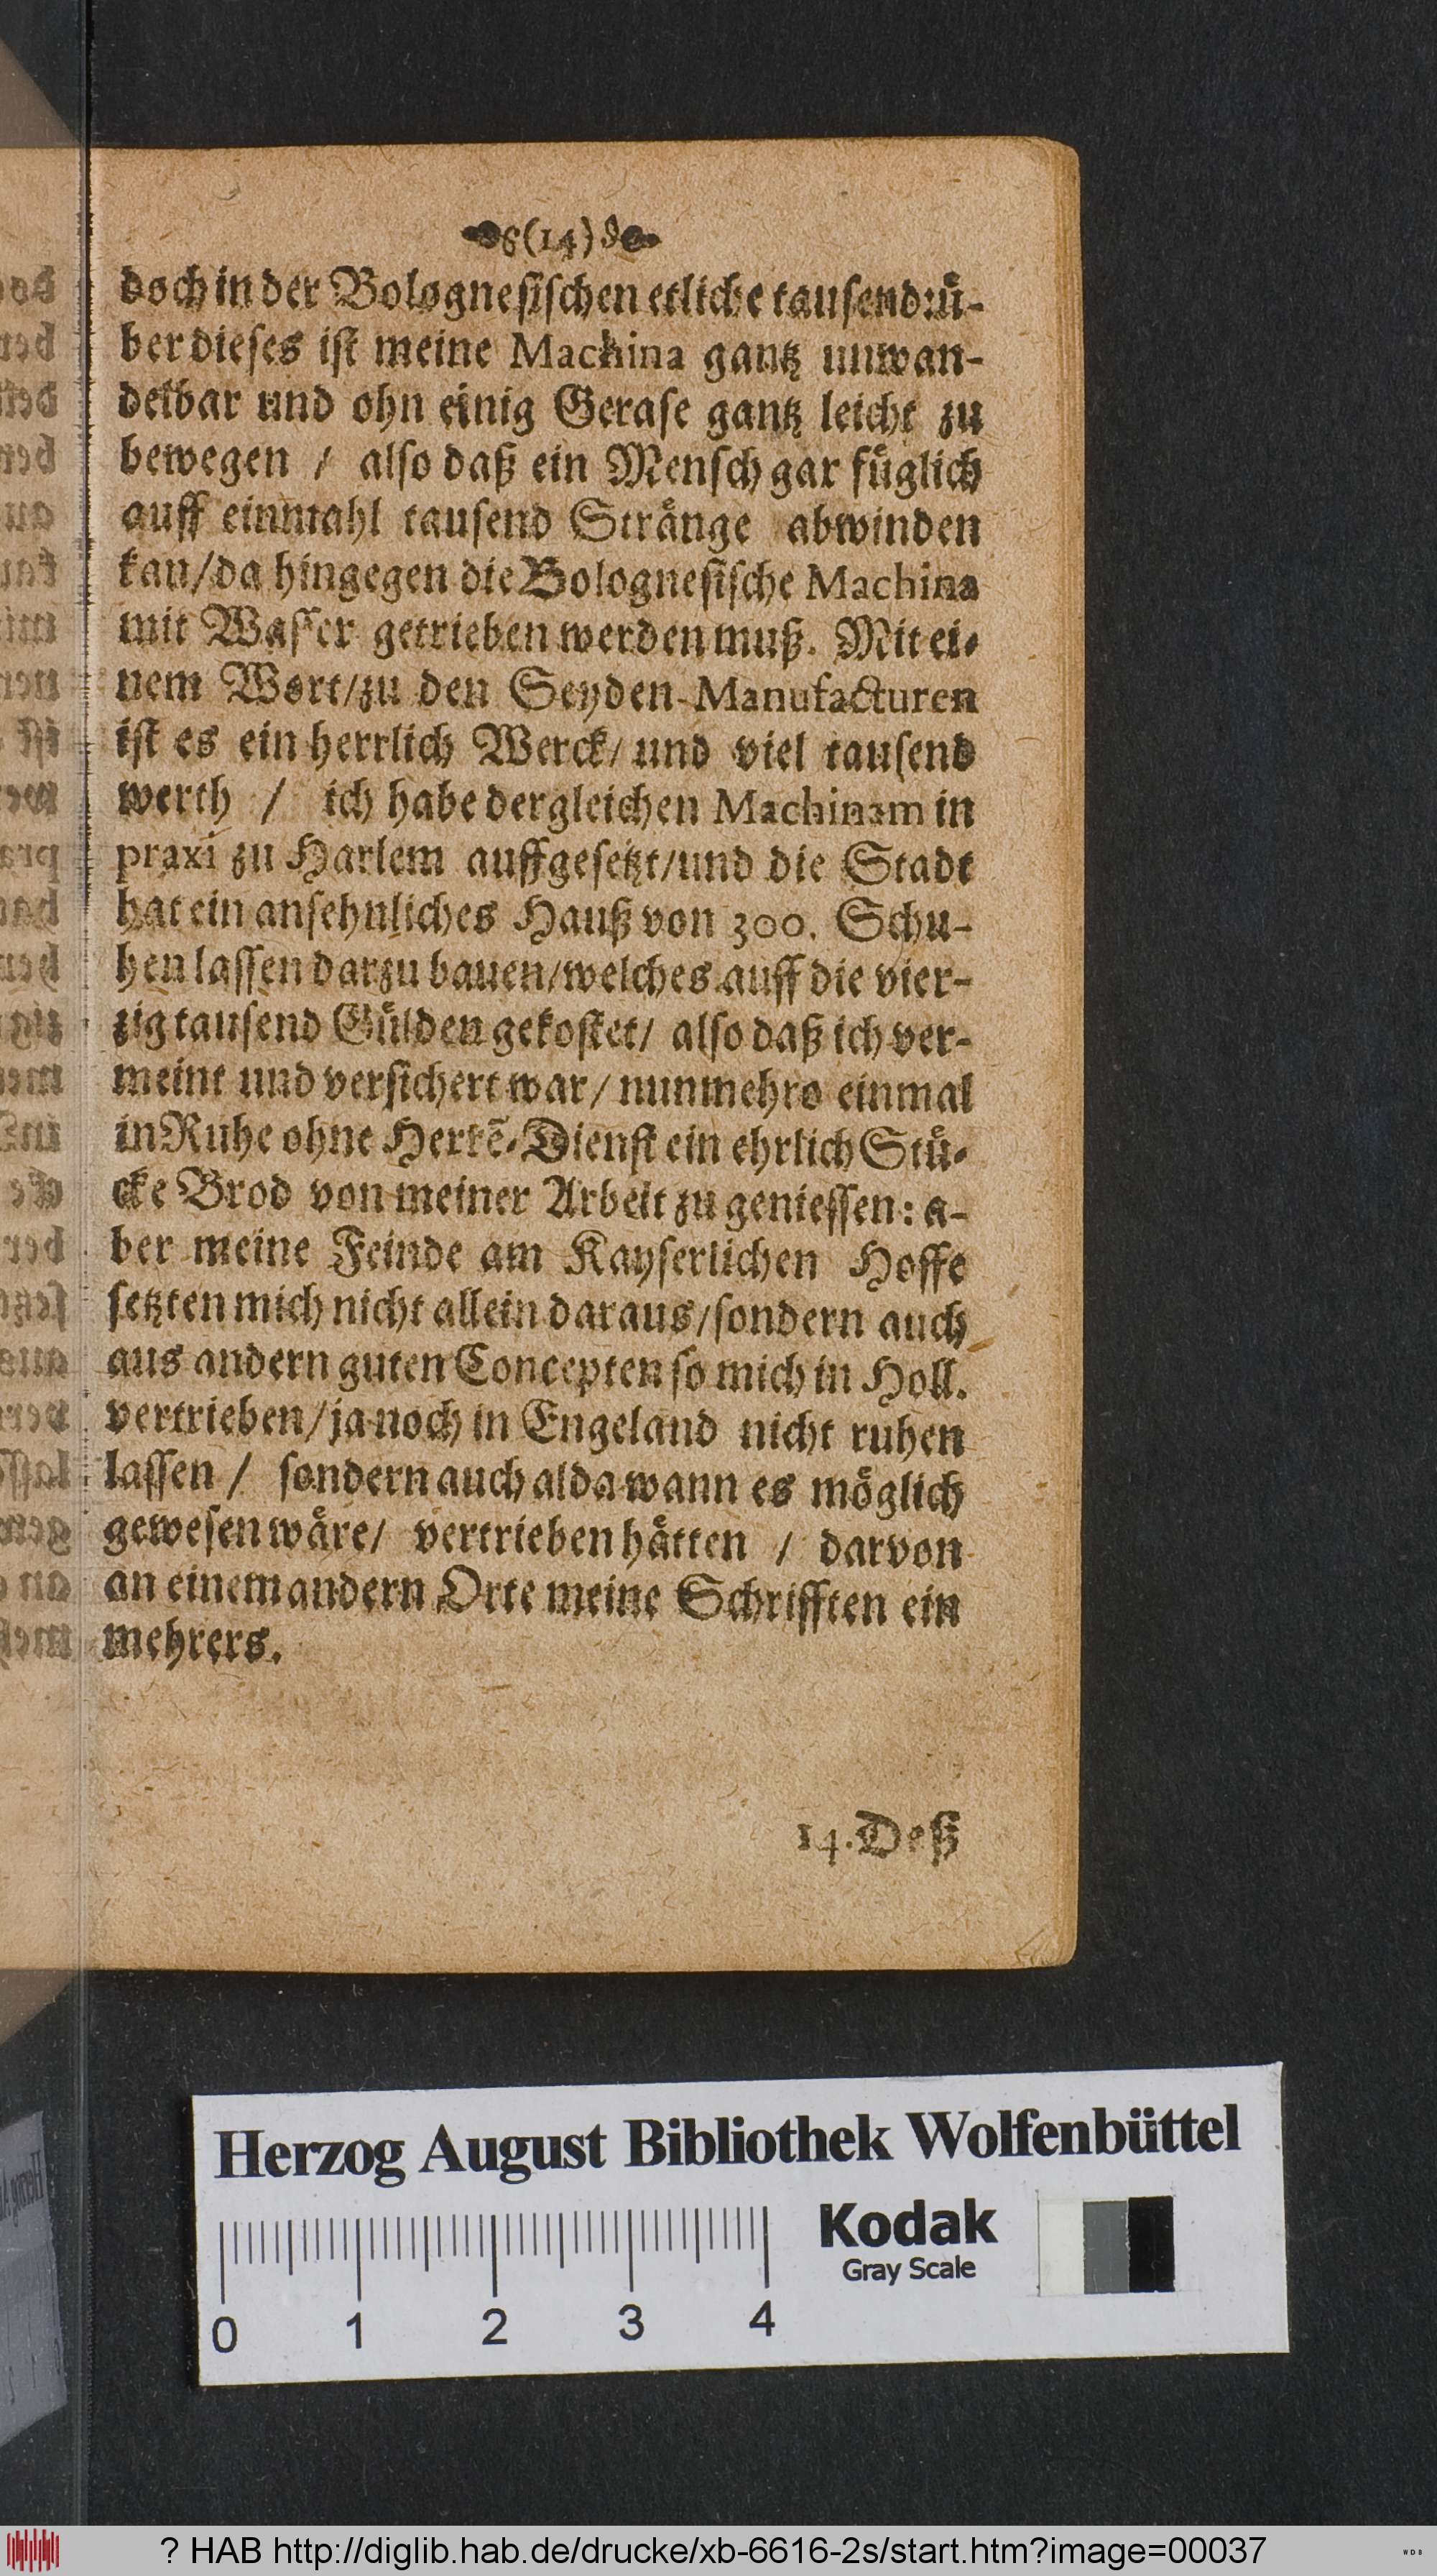 (14)
doch in der Bolognesischen etliche tausend: ü-
ber dieses ist meine Machina gantz unwan-
delbar und ohn einig Gerase gantz leicht zu
bewegen / also daß ein Mensch gar füglich
auff einmahl tausend Stränge abwinden
kan/da hingegen die Bolognesische Machina
mit Wasser getrieben werden muß. Mit ei-
nem Wort/zu den Seyden-Manufacturen
ist es ein herrlich Werck/ und viel tausend
werth / ich habe dergleichen Machinam in
praxi zu Harlem auffgesetzt/und die Stadt
hat ein ansehnliches Hauß von 300. Schu-
hen lassen darzu bauen/welches auff die vier-
zig tausend Gülden gekostet/ also daß ich ver-
meint und versichert war/ nunmehro einmal
in Ruhe ohne Herrē-Dienst ein ehrlich Stü-
cke Brod von meiner Arbeit zu geniessen: a-
ber meine Feinde am Kayserlichen Hoffe
setzten mich nicht allein daraus/sondern auch
aus andern guten Concepten so mich in Holl.
vertrieben/ja noch in Engeland nicht ruhen
lassen / sondern auch alda wann es möglich
gewesen wäre/ vertrieben hätten / darvon
an einem andern Orte meine Schrifften ein
mehrers.
14. Deß
Herzog August Bibliothek Wolfenbüttel
Kodak
Gray Scale
0 1 2 3 4
? HAB http://diglib.hab.de/drucke/xb-6616-2s/start.htm?image=00037